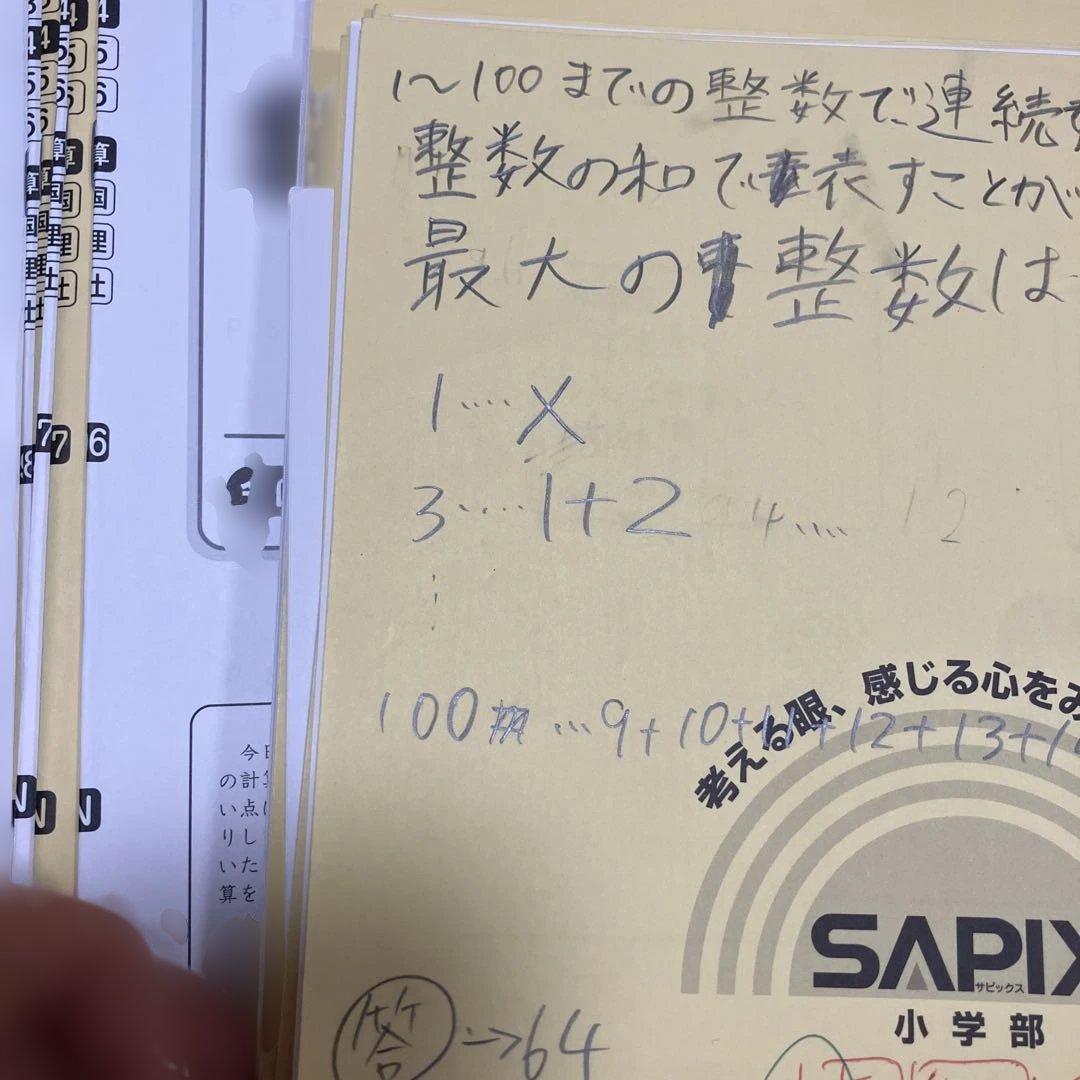 1〜100までの整数で連続す
整数の和で表すことが
最大の整数は
1…. X
3…..1+2
4…. 12
⋮
100 …9+10+11+12+13+1
答→64
考える眼、感じる心をみ
SAPIX
サピックス
小学部
4
5
6
算
国
理
社
7
7
6
N
N
今
の計算
い点
りし
いた
算を